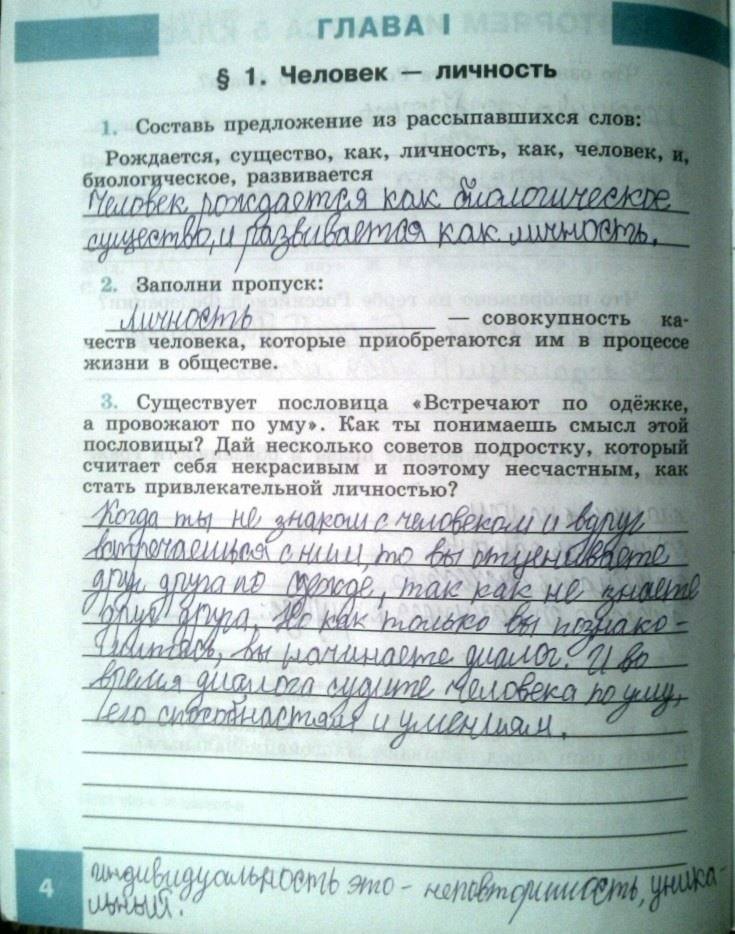 ГЛАВА I
§ 1. Человек — личность
1. Составь предложение из рассыпавшихся слов:
Рождается, существо, как, личность, как, человек, и,
биологическое, развивается
Человек рождается как биологическое
существо, и развивается как личность.
2. Заполни пропуск:
личность — совокупность ка-
честв человека, которые приобретаются им в процессе
жизни в обществе.
3. Существует пословица «Встречают по одёжке,
а провожают по уму». Как ты понимаешь смысл этой
пословицы? Дай несколько советов подростку, который
считает себя некрасивым и поэтому несчастным, как
стать привлекательной личностью?
Когда ты не знаком с человеком и вдруг
встречаешься с ним, то вы оцениваете
друг друга по одежде, так как не знаете
друг друга. Но как только вы познако-
митесь, вы начинаете диалог. И во
время диалога судите человека по уму,
его способностям и умениям.
4
индивидуальность это - неповторимость, уника-
льный.